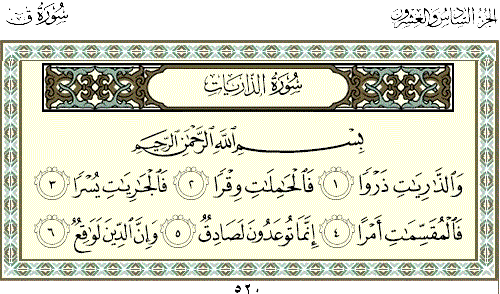 الجزء السادس والعشرون
سورة ق
سورة الذاريات
بسم الله الرحمن الرحيم
وَالذَّارِيَاتِ ذَرْوًا ١ فَالْحَامِلَاتِ وِقْرًا ٢ فَالْجَارِيَاتِ يُسْرًا ٣
فَالْمُقَسِّمَاتِ أَمْرًا ٤ إِنَّمَا تُوعَدُونَ لَصَادِقٌ ٥ وَإِنَّ الدِّينَ لَوَاقِعٌ ٦
٥٢٠